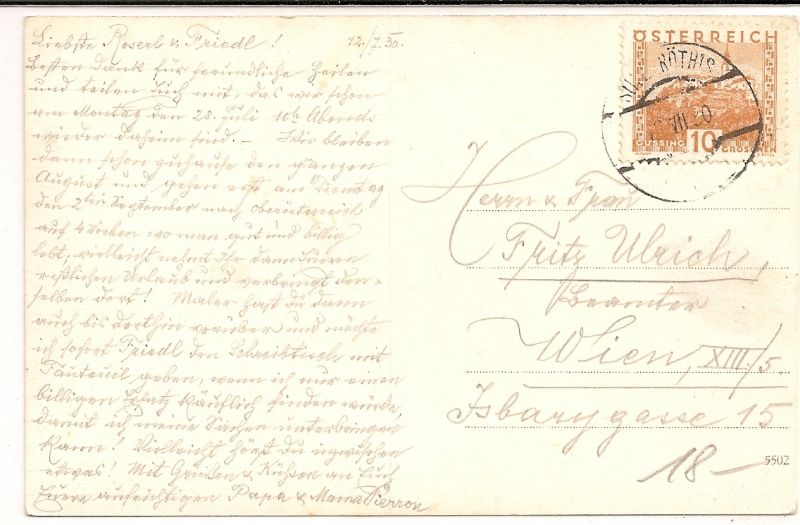 Liebste Roserl & Friedl! 12./7.30.
Besten Dank für freundliche Zeilen
und teilen Euch mit, das wir schon
am Montag den 28. Juli 10h Abends
wieder daheim sind. – Wir bleiben
dann schon zuhause den ganzen
August und gehen erst am Dienstag
den 2ten September nach Oberösterreich
auf 4 Wochen wo man gut und billig
lebt, vielleicht nehmt Ihr dann Euren
restlichen Urlaub und verbringt den-
selben dort! Maler hast Du dann
auch bis dorthin vorüber und möchte
ich sofort Friedl den Schreibtisch mit
Fauteuil geben, wenn ich nur einen
billigen Ersatz käuflich finden würde,
damit ich meine Sachen unterbringen
kann! Vielleicht hörst Du inzwischen
etwas! Mit Grüßen & Küssen an Euch
Eure aufrichtigen Papa & Mama Pierron
ÖSTERREICH
GÜSSING 10 GROSCHEN
RÖTHIS
VII 30
Herrn & Frau
Fritz Ulrich,
Beamter
Wien, XIII/5.
Isbarygasse 15
18 –
5502